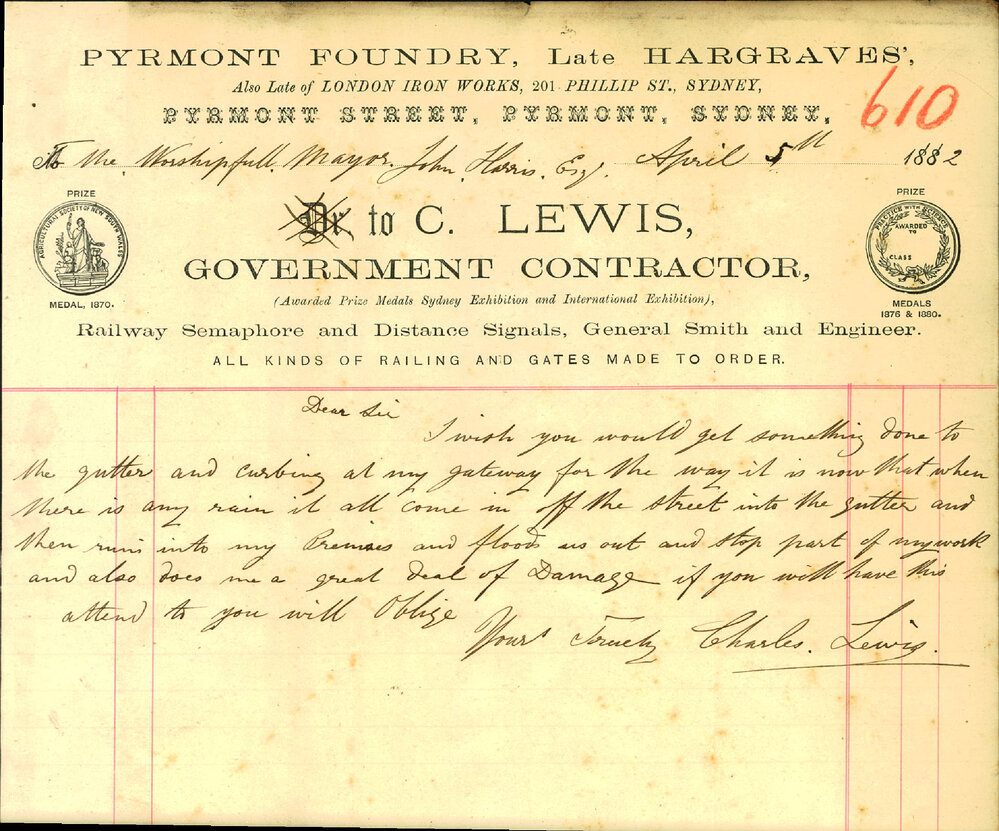 PYRMONT FOUNDRY, Late HARGRAVES',
Also Late of LONDON IRON WORKS, 201 PHILLIP ST., SYDNEY,
610
PYRMONT STREET, PYRMONT, SYDNEY,
To the Worshipfull Mayor John Harris. Esq. April 5th 1882
PRIZE
AGRICULTURAL SOCIETY OF NEW SOUTH WALES
MEDAL, 1870.
Dr to C. LEWIS,
GOVERNMENT CONTRACTOR,
(Awarded Prize Medals Sydney Exhibition and International Exhibition),
PRIZE
PRACTICE WITH SCIENCE
AWARDED
TO
CLASS
MEDALS
1876 & 1880.
Railway Semaphore and Distance Signals, General Smith and Engineer.
ALL KINDS OF RAILING AND GATES MADE TO ORDER.
Dear Sir
I wish you would get something done to
the gutter and curbing at my gateway for the way it is now that when
there is any rain it all come in off the street into the gutter and
then runs into my Premises and floods us out and stop part of my work
and also does me a great deal of Damage if you will have this
attend to you will Oblige
Yours Truely Charles. Lewis.